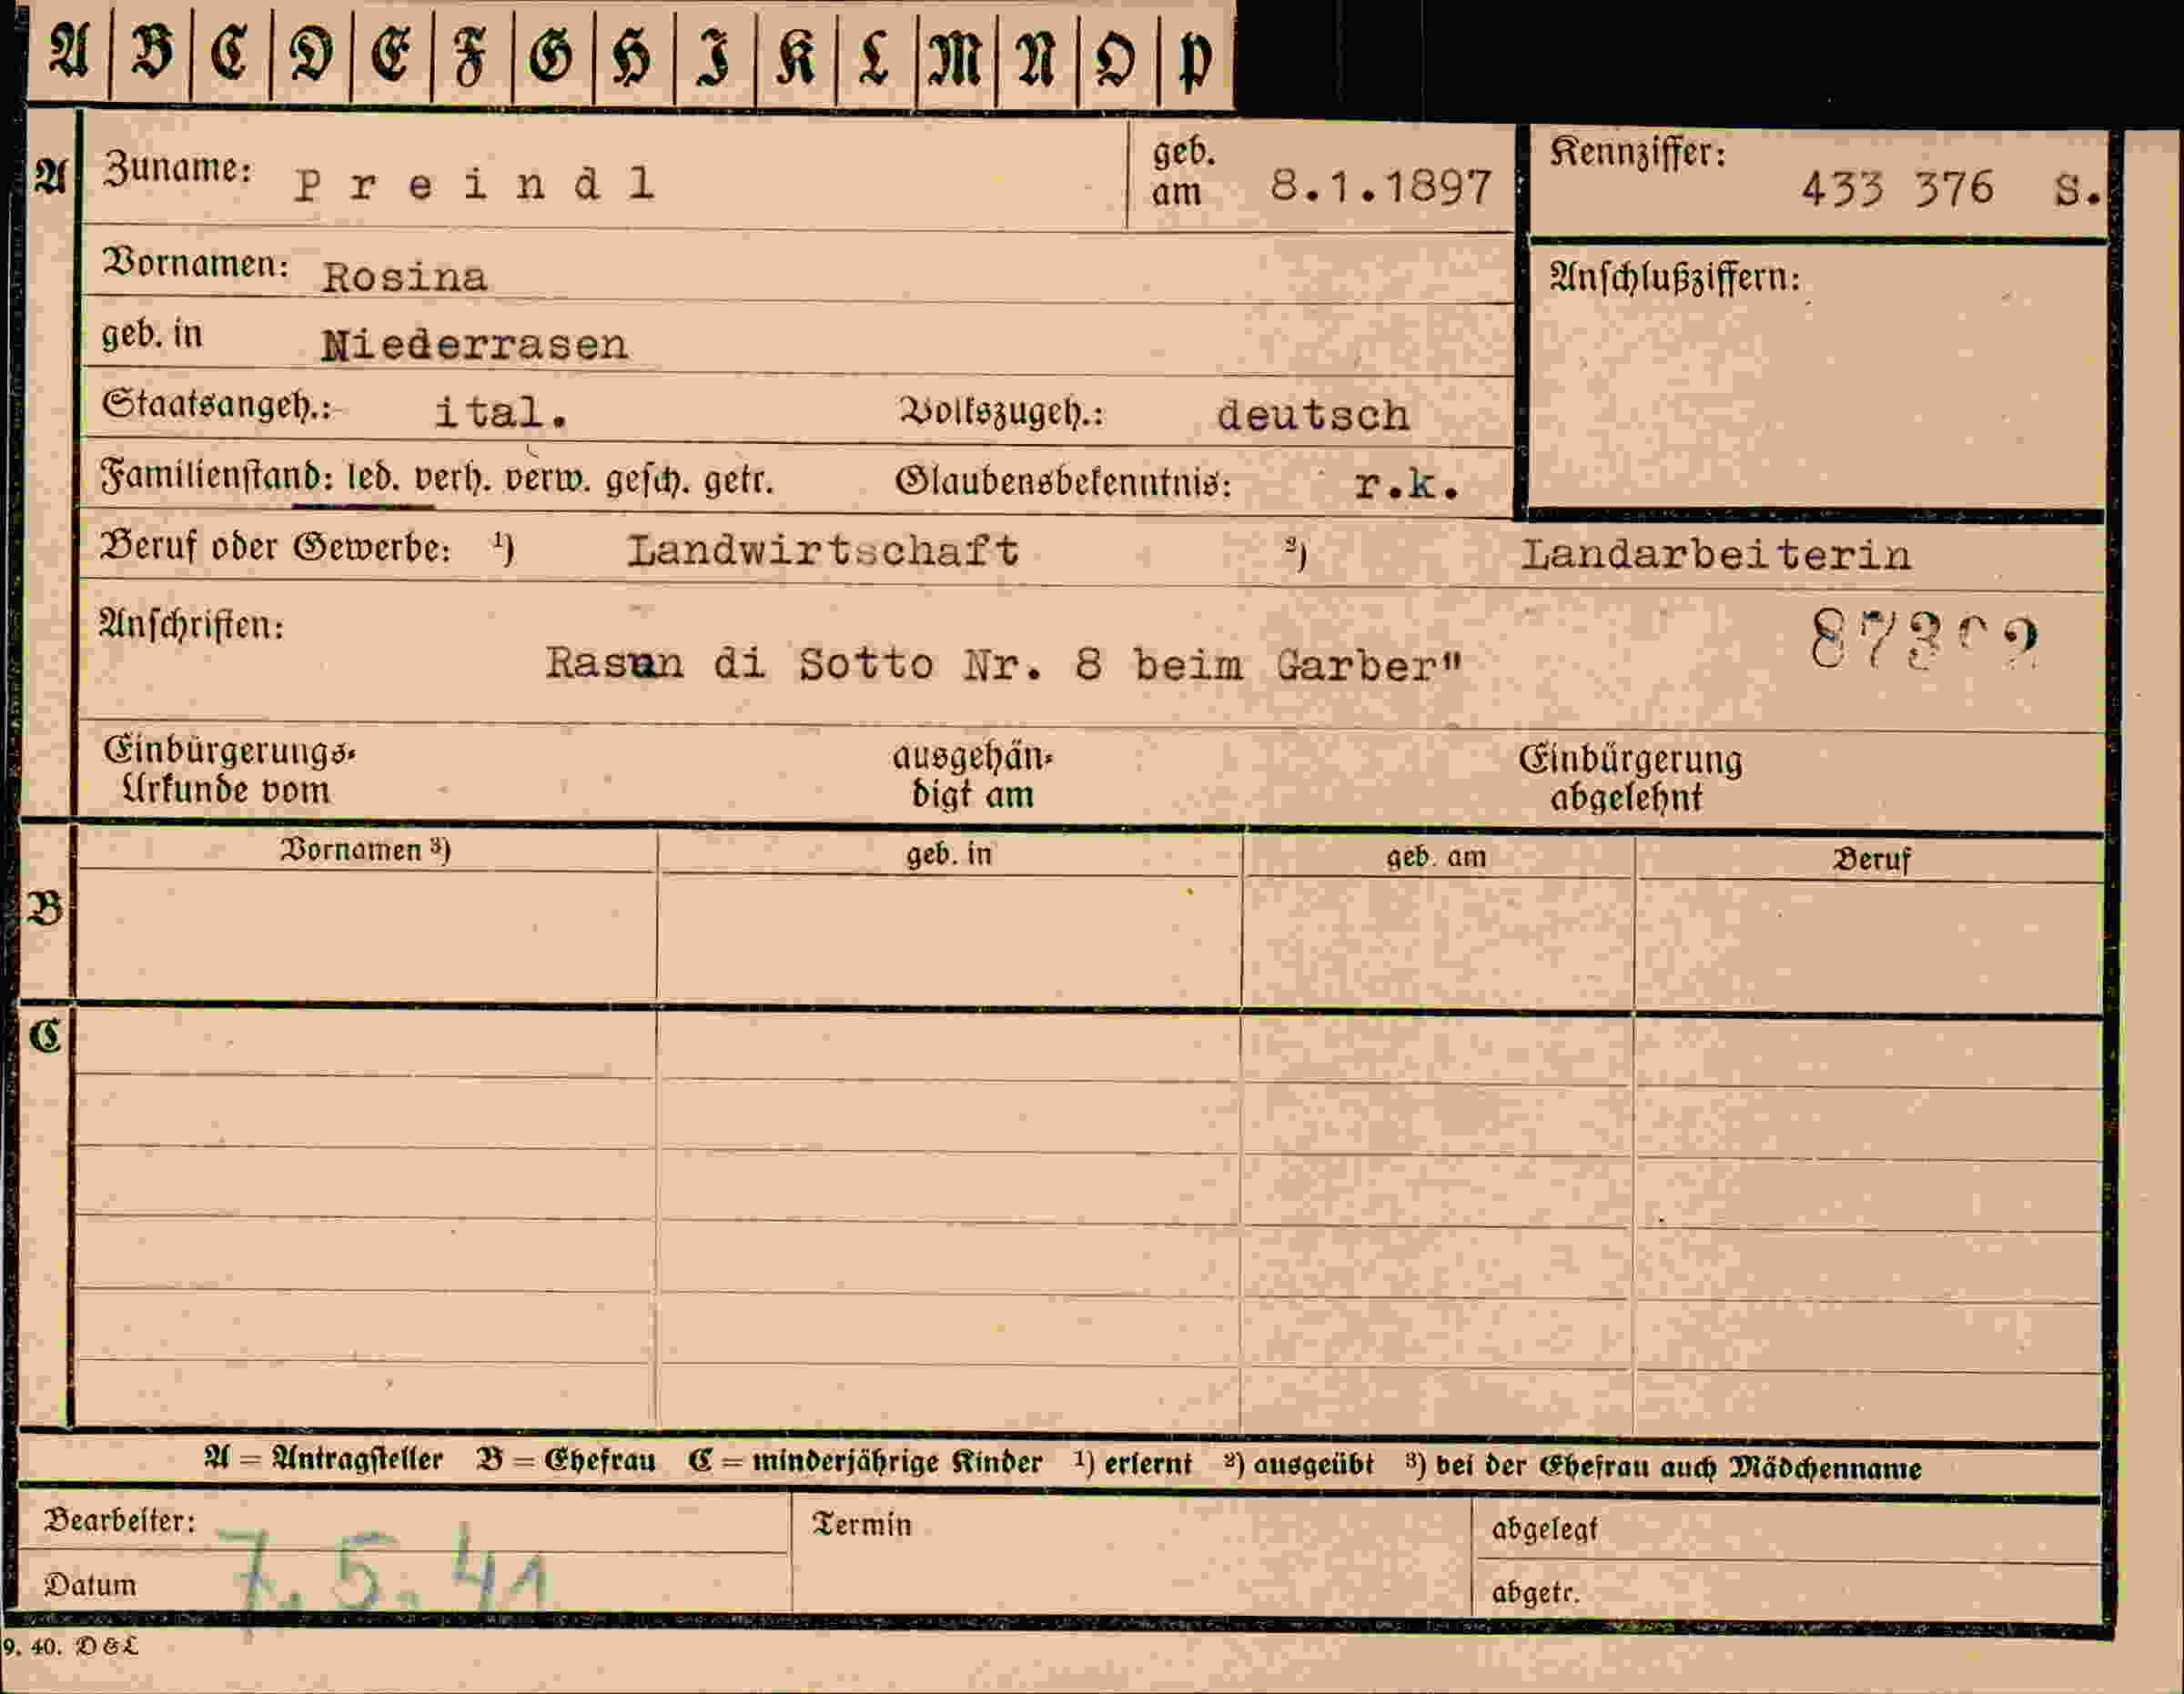 A B C D E F G H I K L M N O P
A Zuname: Preindl geb. am 8.1.1897 Kennziffer: 433 376 S.
Vornamen: Rosina Anschlußziffern:
geb. in Niederrasen
Staatsangeh.: ital. Volkszugeh.: deutsch
Familienstand: led. verh. verw. gesch. getr. Glaubensbekenntnis: r.k.
Beruf oder Gewerbe: ¹) Landwirtschaft ²) Landarbeiterin
Anschriften:
Rasun di Sotto Nr. 8 beim Garber"
Einbürgerungs- ausgehän- Einbürgerung
Urkunde vom digt am abgelehnt
Vornamen ³) geb. in geb. am Beruf
B
C
A = Antragsteller B = Ehefrau C = minderjährige Kinder ¹) erlernt ²) ausgeübt ³) bei der Ehefrau auch Mädchenname
Bearbeiter: Termin abgelegt
Datum 7.5.41 abgetr.
9. 40. D & L